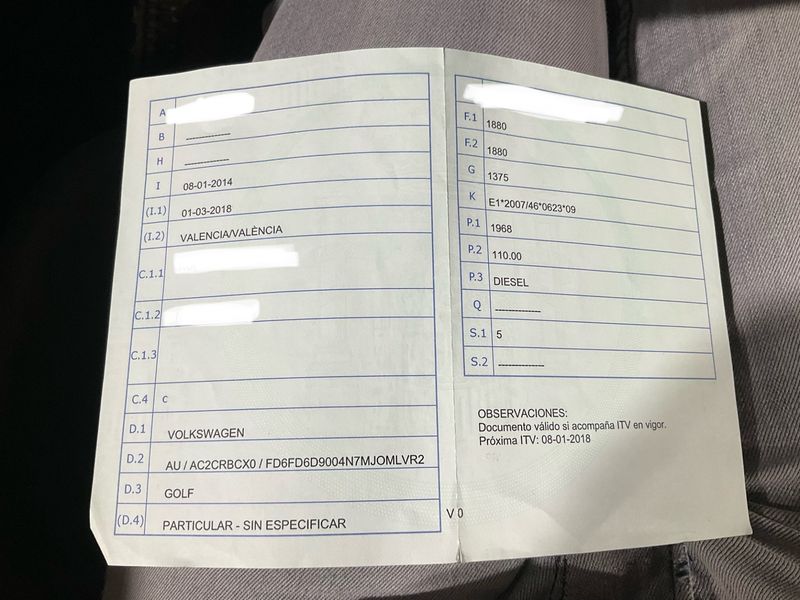 A
B -------------
H -------------
I 08-01-2014
(I.1) 01-03-2018
(I.2) VALENCIA/VALÈNCIA
C.1.1
C.1.2
C.1.3
C.4 c
D.1 VOLKSWAGEN
D.2 AU / AC2CRBCX0 / FD6FD6D9004N7MJOMLVR2
D.3 GOLF
(D.4) PARTICULAR - SIN ESPECIFICAR
F.1 1880
F.2 1880
G 1375
K E1*2007/46*0623*09
P.1 1968
P.2 110.00
P.3 DIESEL
Q -------------
S.1 5
S.2 -------------
OBSERVACIONES:
Documento válido si acompaña ITV en vigor.
Próxima ITV: 08-01-2018
V 0